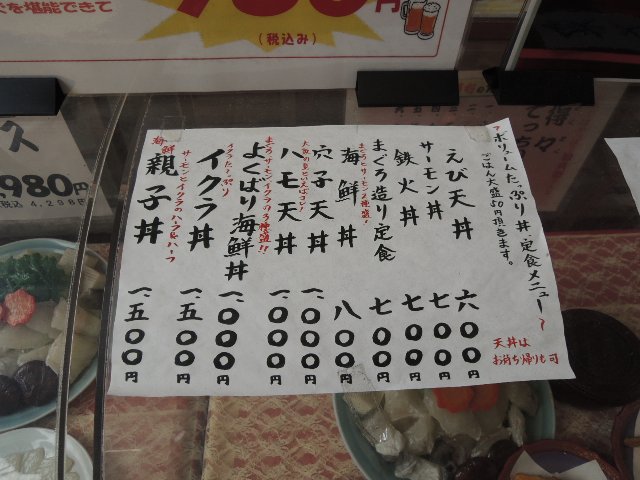 を堪能できて
円
(税込み)
980円
税込 4,298円
~ボリュームたっぷり丼・定食メニュー~
ごはん大盛50円頂きます。
えび天丼 六〇〇円
サーモン丼 七〇〇円
鉄火丼 七〇〇円
まぐろ造り定食 七〇〇円
海鮮丼 八〇〇円
穴子天丼 一、〇〇〇円
ハモ天丼 一、〇〇〇円
よくばり海鮮丼 一、〇〇〇円
イクラたっぷり
イクラ丼 一、五〇〇円
サーモンとイクラのハーフ&ハーフ
海鮮親子丼 一、五〇〇円
天丼は
お持ち帰りも可